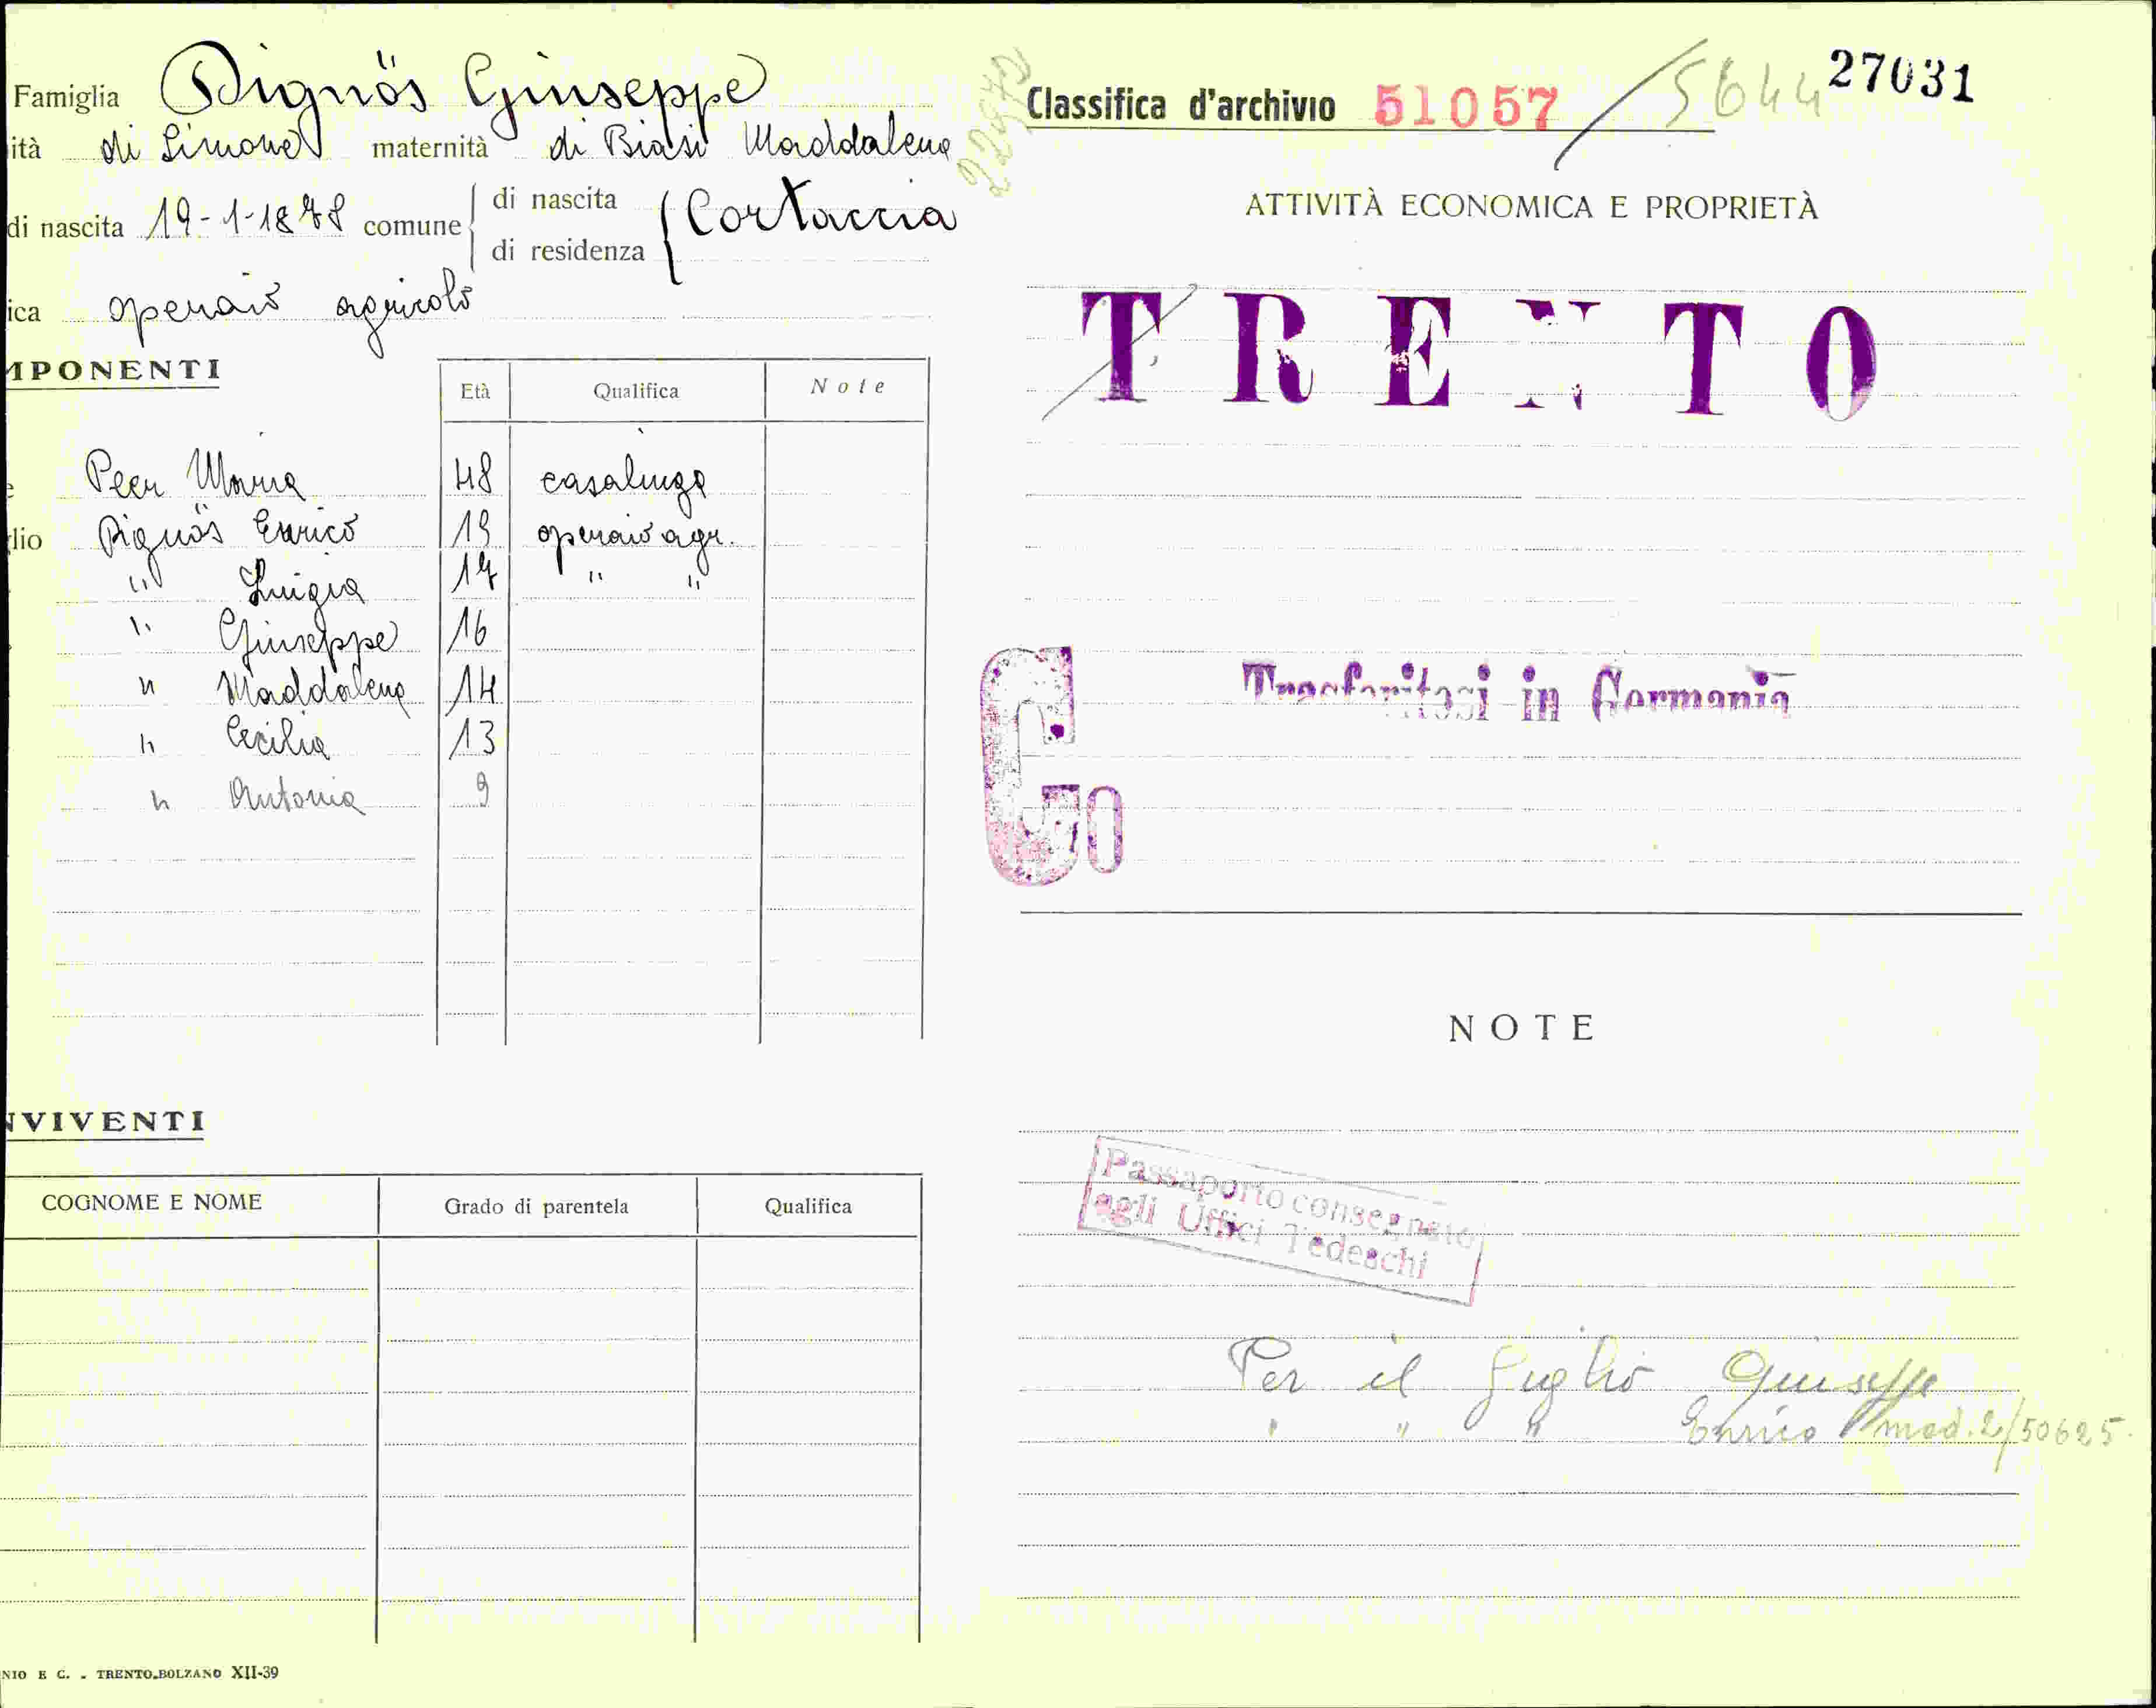 Famiglia Dignös Giuseppe
ità di Simone maternità di Biasi Maddalena
di nascita 19-1-1878 comune di nascita Cortaccia
di residenza
ica operaio agricolo
MPONENTI
Età Qualifica Note
Peer Maria 48 casalinga
lio Dignös Enrico 19 operaio agr.
" Luigia 17 " "
" Giuseppe 16
" Maddalena 14
" Cecilia 13
" Antonia 9
NVIVENTI
COGNOME E NOME Grado di parentela Qualifica
NIO E C. - TRENTO-BOLZANO XII-39
22940
Classifica d'archivio 51057 / 5644 27031
ATTIVITÀ ECONOMICA E PROPRIETÀ
TRENTO
Trasferitosi in Germania
G.
50
NOTE
Passaporto consegnato
agli Uffici Tedeschi
Per il figlio Giuseppe
" " " Enrico mod. 2/50625